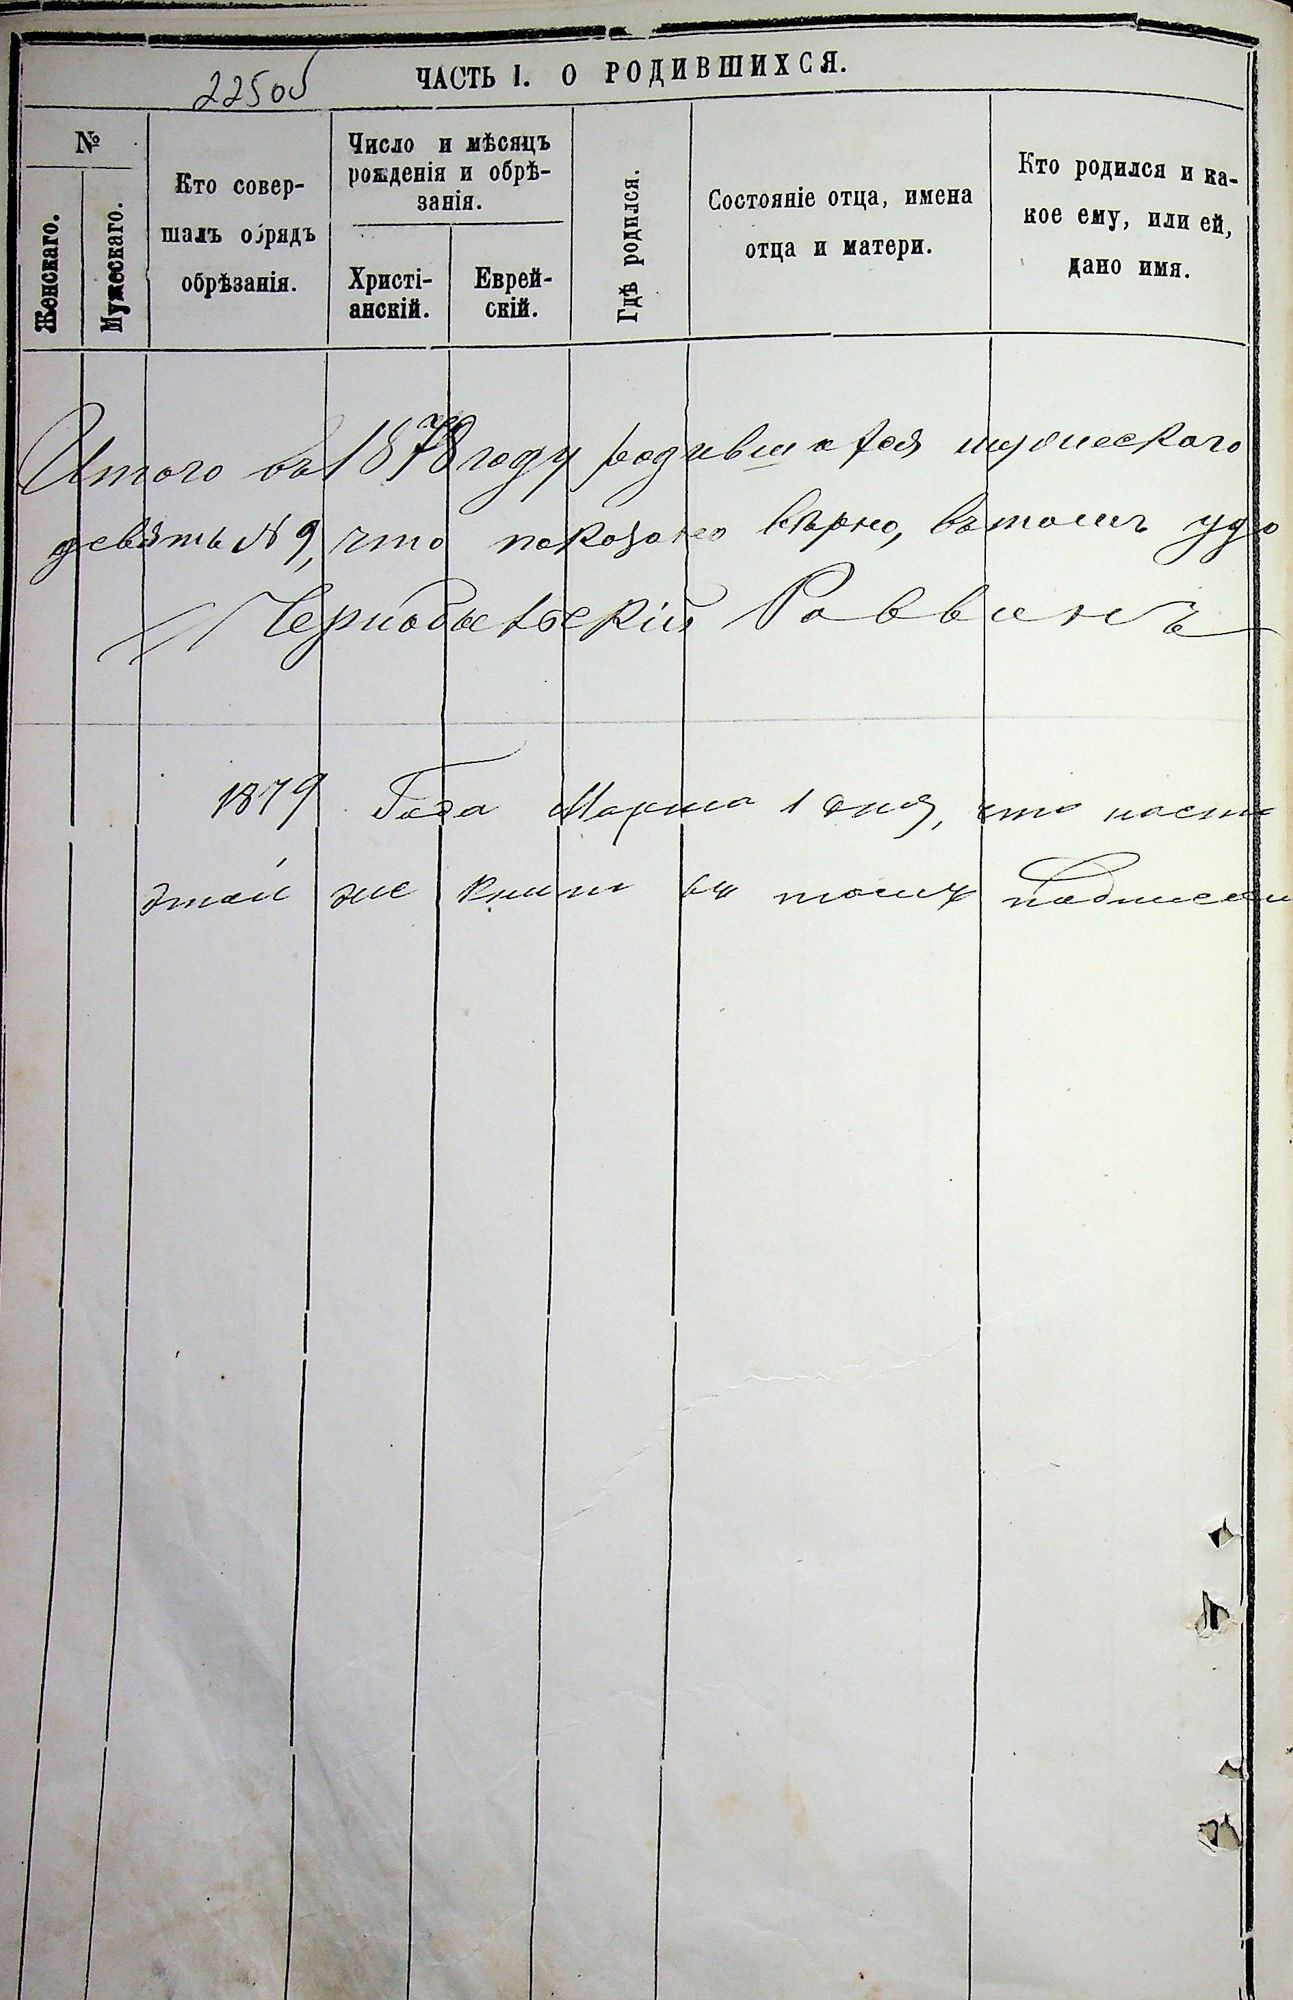 225об
ЧАСТЬ I. О РОДИВШИХСЯ.
№
Женскаго.
Мужескаго.
Кто совер-
шалъ обрядъ
обрѣзанія.
Число и мѣсяцъ
рожденія и обрѣ-
занія.
Христі-
анскій.
Еврей-
скій.
Гдѣ родился.
Состояніе отца, имена
отца и матери.
Кто родился и ка-
кое ему, или ей,
дано имя.
Итого въ 1878 году родившагося мужескаго
девять № 9, что показано вѣрно, въ томъ удо
Чернобыльскій Раввинъ
1879 Года Марта 1 дня, что насто
этой же книги въ томъ подписом